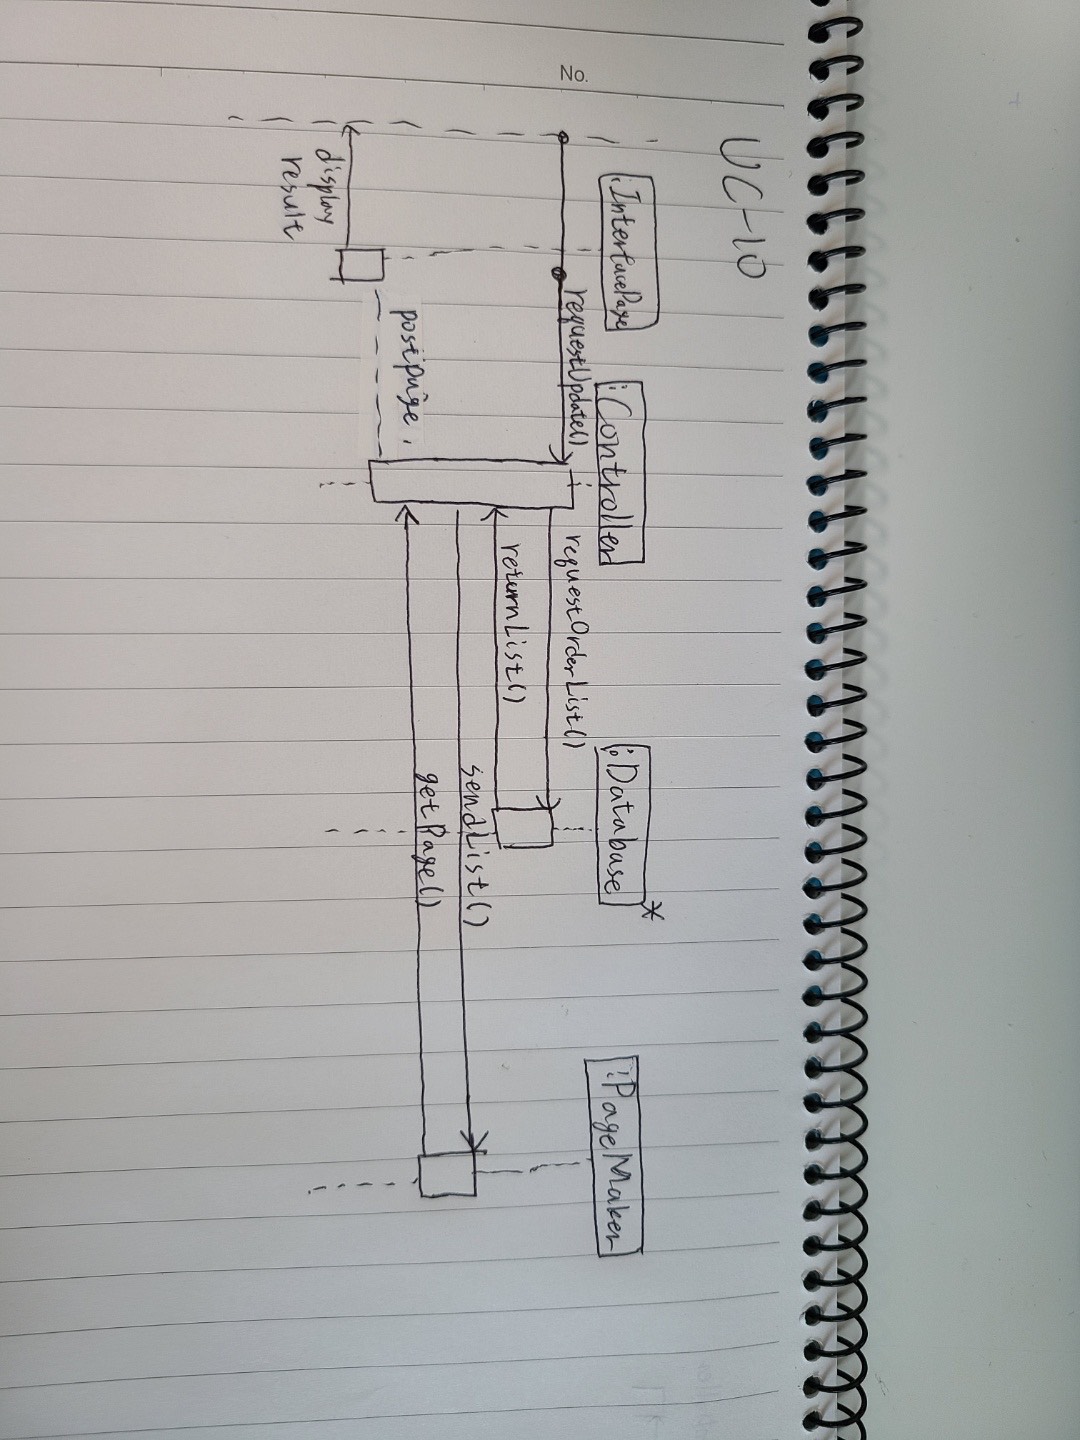 UC-10
:InterfacePage
:Controller
:Database *
:PageMaker
No.
requestUpdate()
requestOrderList()
returnList()
sendList()
getPage()
postpage
display
result